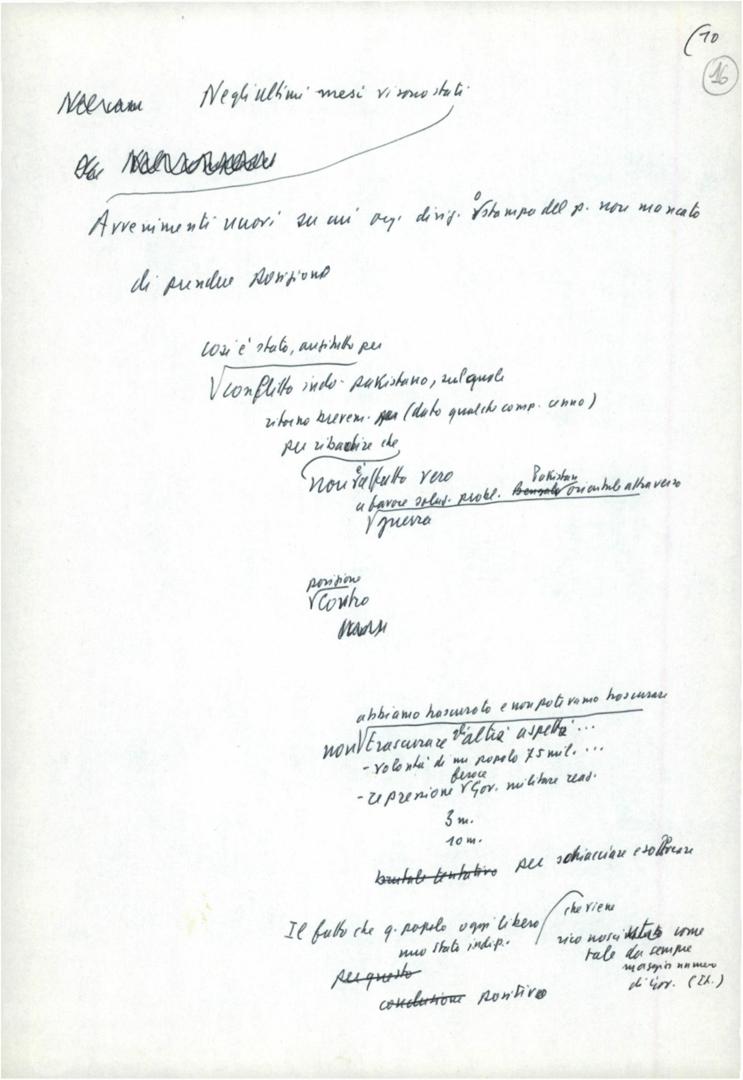 (10
16
Negli ultimi mesi vi sono stati
Avvenimenti nuovi su cui org. dirig. o stampa del p. non mancato
di prendere posizione
così è stato, anzitutto per
conflitto indo-pakistano, sul quale
ritorno brevem. (dato qualche comp. cenno)
per ribadire che
non è affatto vero
a favore soluz. probl. Bengala Pakistan orientale attraverso
guerra
posizione
contro
abbiamo trascurato e non potevamo trascurare
non trascurare altri aspetti ...
- volontà di un popolo 75 mil. ...
feroce
- repressione Gov. militare reaz.
3 m.
10 m.
brutale tentativo per schiacciare e soffocare
Il fatto che q. popolo oggi libero che viene
uno stato indip. riconosciuto come
tale da sempre
maggior numero
di Gov. (It.)
per questo
conclusione positiva